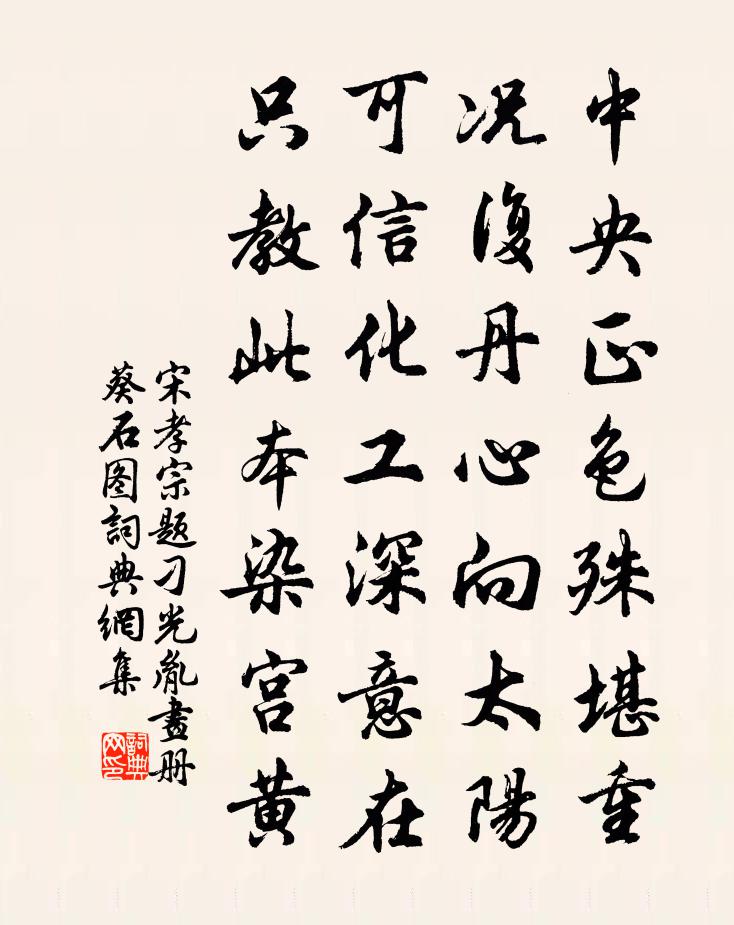 中央正色殊堪重
况復丹心向太陽
可信化工深意在
只教此本染宫黄
宋孝宗题刁光胤畫册
葵石图詞典網集
詞典网印